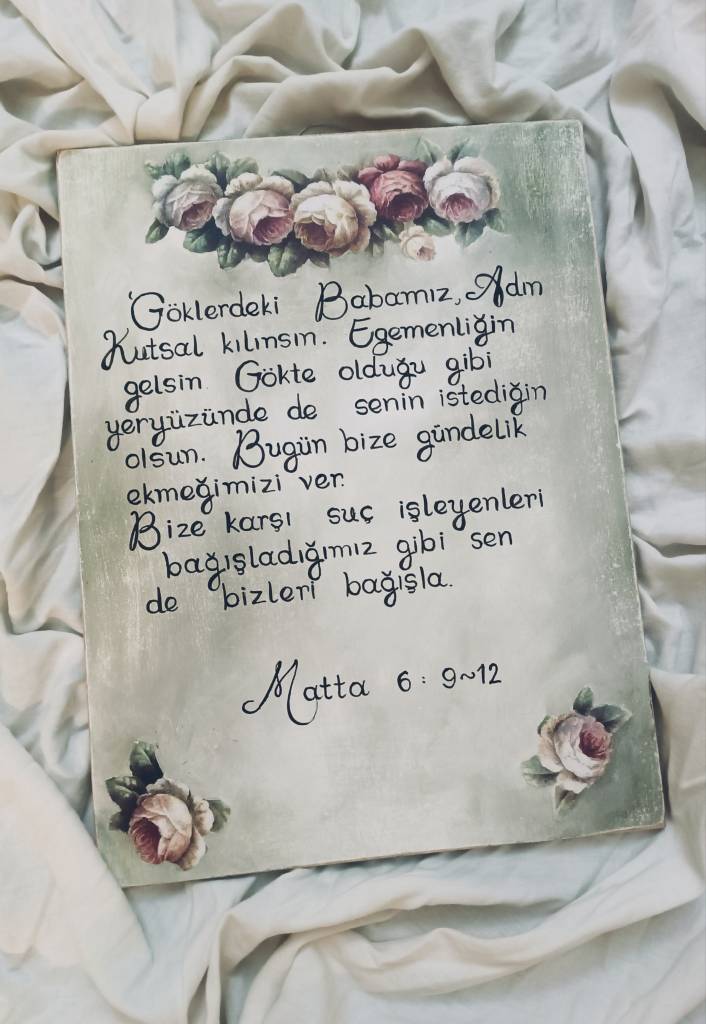 'Göklerdeki Babamız, Adın
Kutsal kılınsın. Egemenliğin
gelsin. Gökte olduğu gibi
yeryüzünde de senin istediğin
olsun. Bugün bize gündelik
ekmeğimizi ver.
Bize karşı suç işleyenleri
bağışladığımız gibi sen
de bizleri bağışla.
Matta 6: 9~12